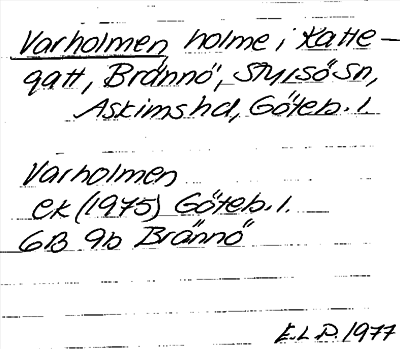 Varholmen, holme i Katte-
gatt, Brännö, Styrsö sn,
Askims hd, Göteb. l.
Varholmen
ek (1975) Göteb. l.
6B 9b Brännö
E.L.P. 1977